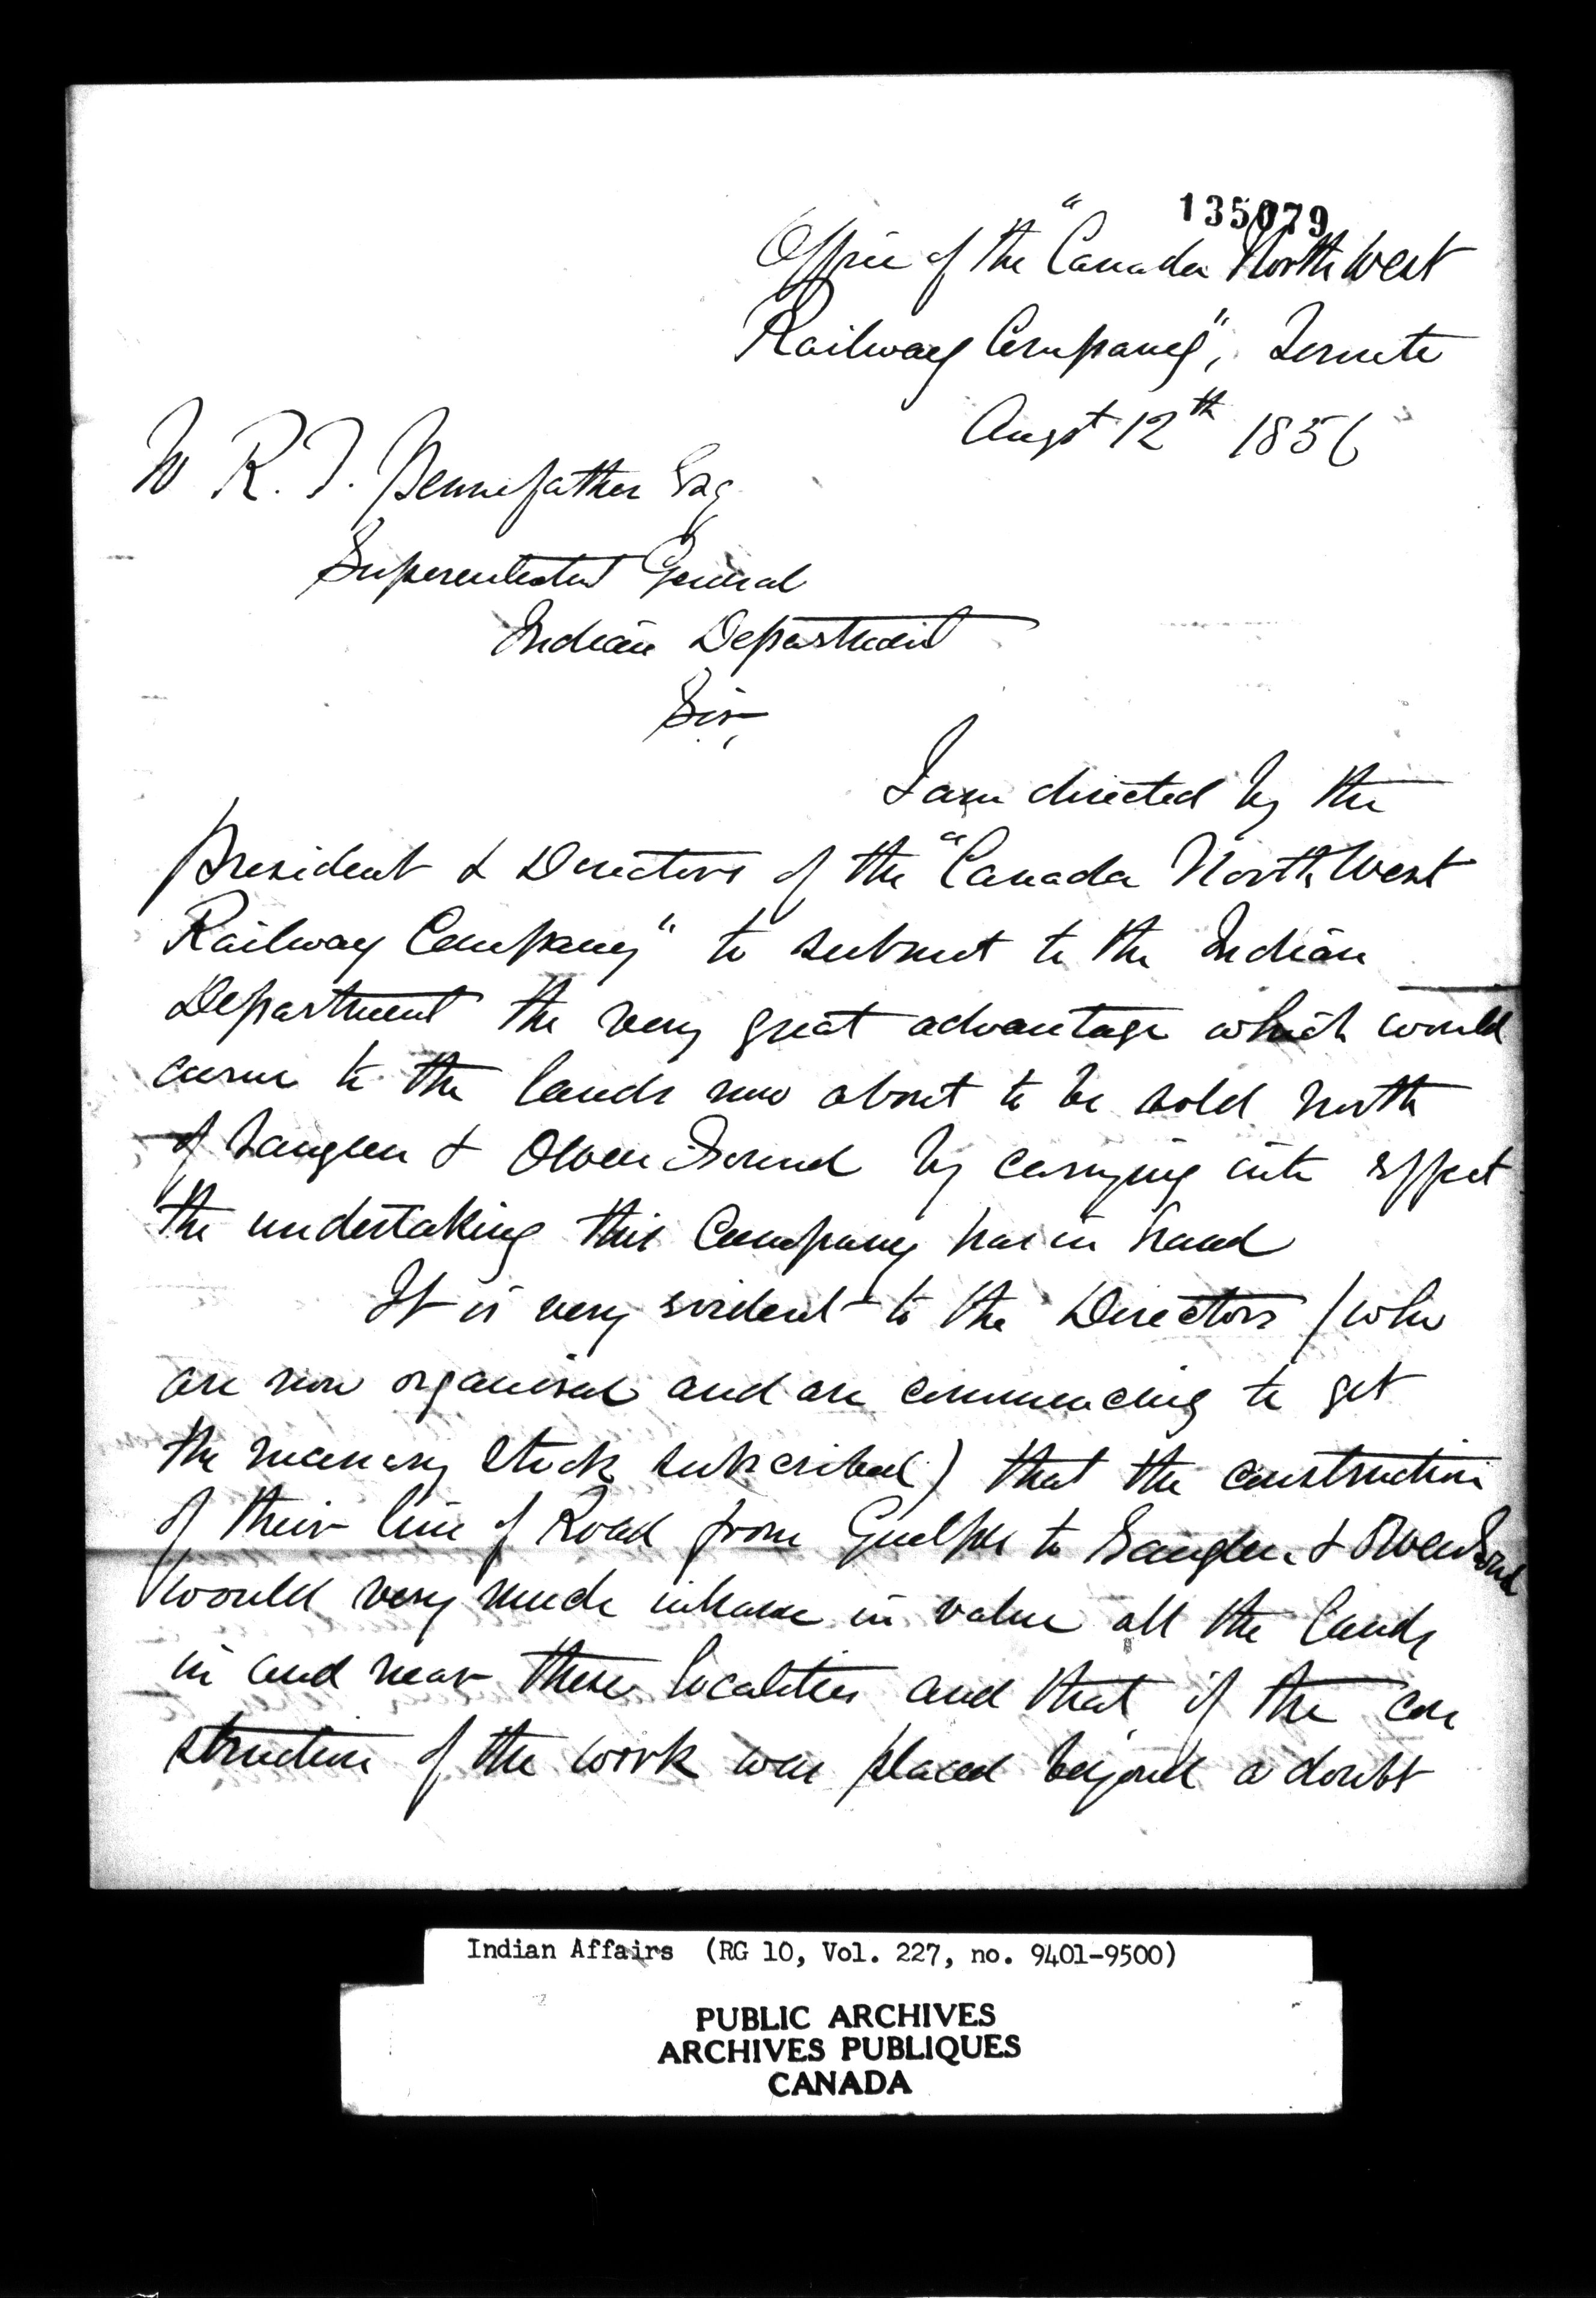 135079
Office of the "Canada North West
Railway Company", Toronto
Augst 12th 1856
R. T. Pennefather Esq
Superentedent General
Indian Department
Sir,
I am directed by the
President & Directors of the "Canada North West
Railway Company" to submit to the Indian
Department the very great advantage which would
accrue to the lands now about to be sold north
of Saugeen & Owen Sound by carrying into effect
the undertaking this Company has in hand
It is very evident to the Directors (who
are now organised and are commencing to get
the necessary stock subscribed) that the construction
of their line of Road from Guelph to Saugeen & Owen Sound
would very much inhance in value all the lands
in and near these localities and that if the con
struction of the work was placed beyond a doubt
Indian Affairs (RG 10, Vol. 227, no. 9401-9500)
PUBLIC ARCHIVES
ARCHIVES PUBLIQUES
CANADA